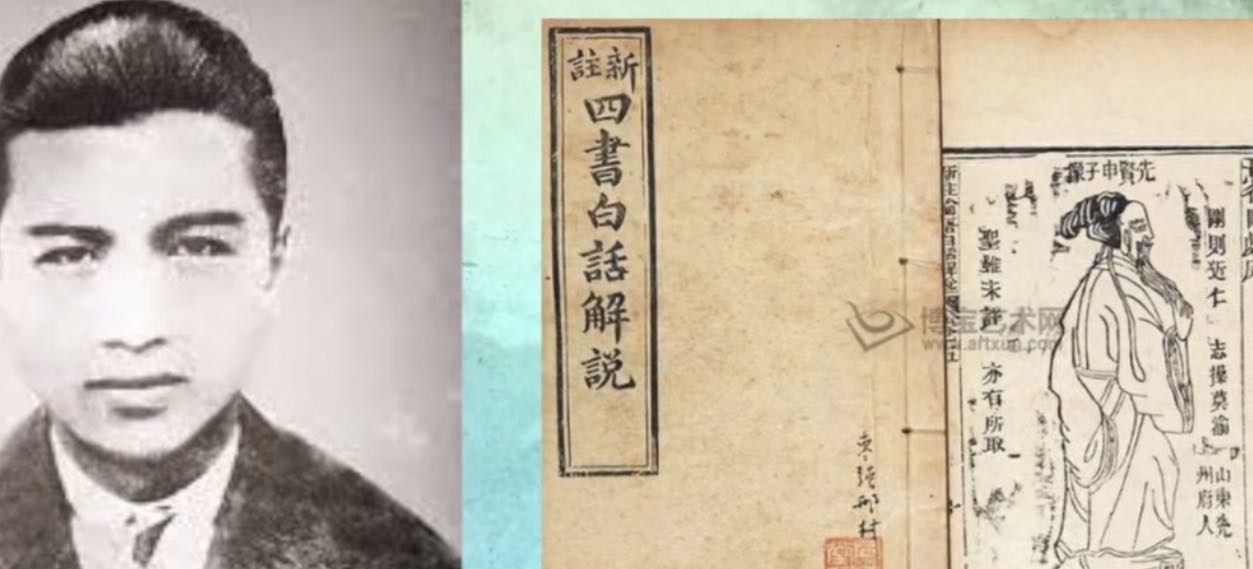 新註
四書白話解説
先賢申子像
剛則近仁
志操莫渝
山東兗
州府人
聖雖未許
亦有所取
博宝艺术网
www.artxun.com